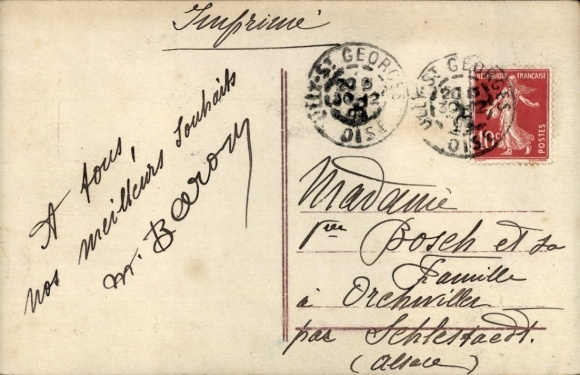 Imprimé
A tous,
nos meilleurs souhaits
Baron
JULLY-ST GEORGES
OISE
JULLY-ST GEORGES
OISE
REPUBLIQUE FRANÇAISE
10c
POSTES
Madame
Vve Bosch et sa
Famille
à Orchwiller
par Schlestaedt.
(Alsace)